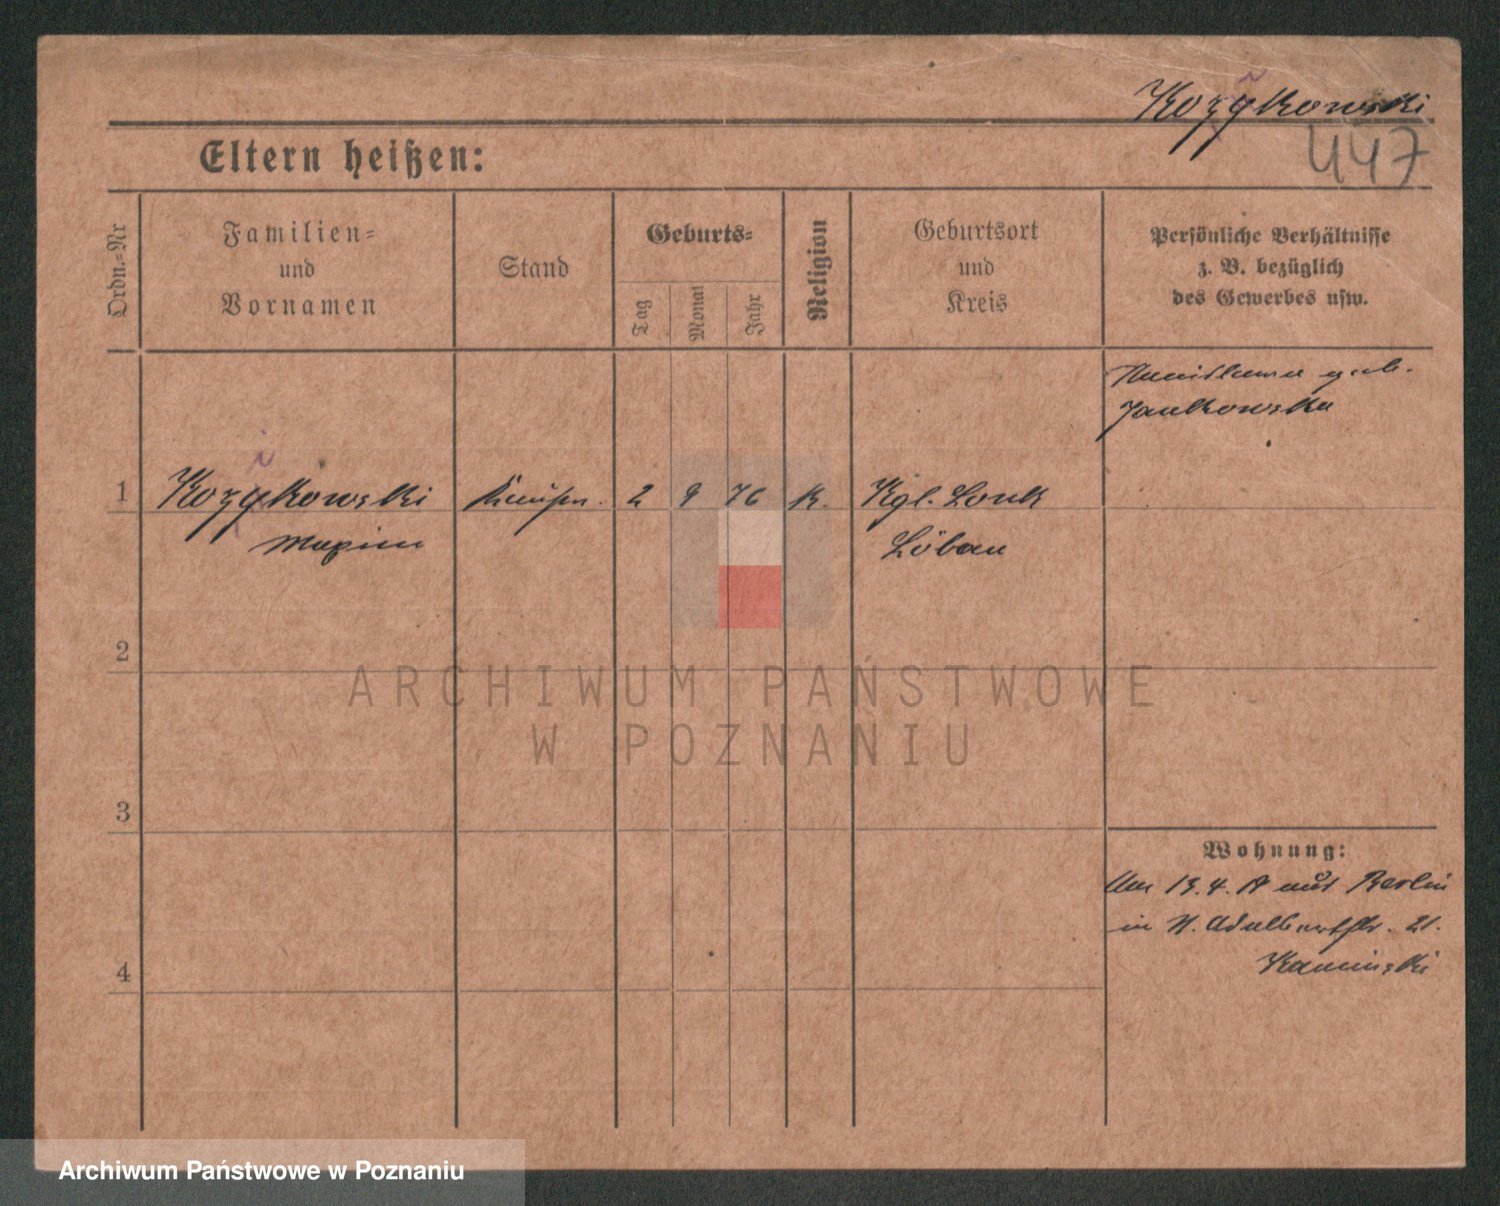 Kozykowski
447
Eltern heißen:
Ordn.-Nr
Familien-
und
Vornamen
Stand
Geburts-
Tag
Monat
Jahr
Religion
Geburtsort
und
Kreis
Persönliche Verhältnisse
z. B. bezüglich
des Gewerbes usw.
geb.
Jankowska
1
Kozykowski
2
9
76
K.
Kgl. Lonk
Löbau
2
3
4
Wohnung:
19 aus Berlin
in Adalbertstr. 21.
Kaminski
ARCHIWUM PAŃSTWOWE
W POZNANIU
Archiwum Państwowe w Poznaniu